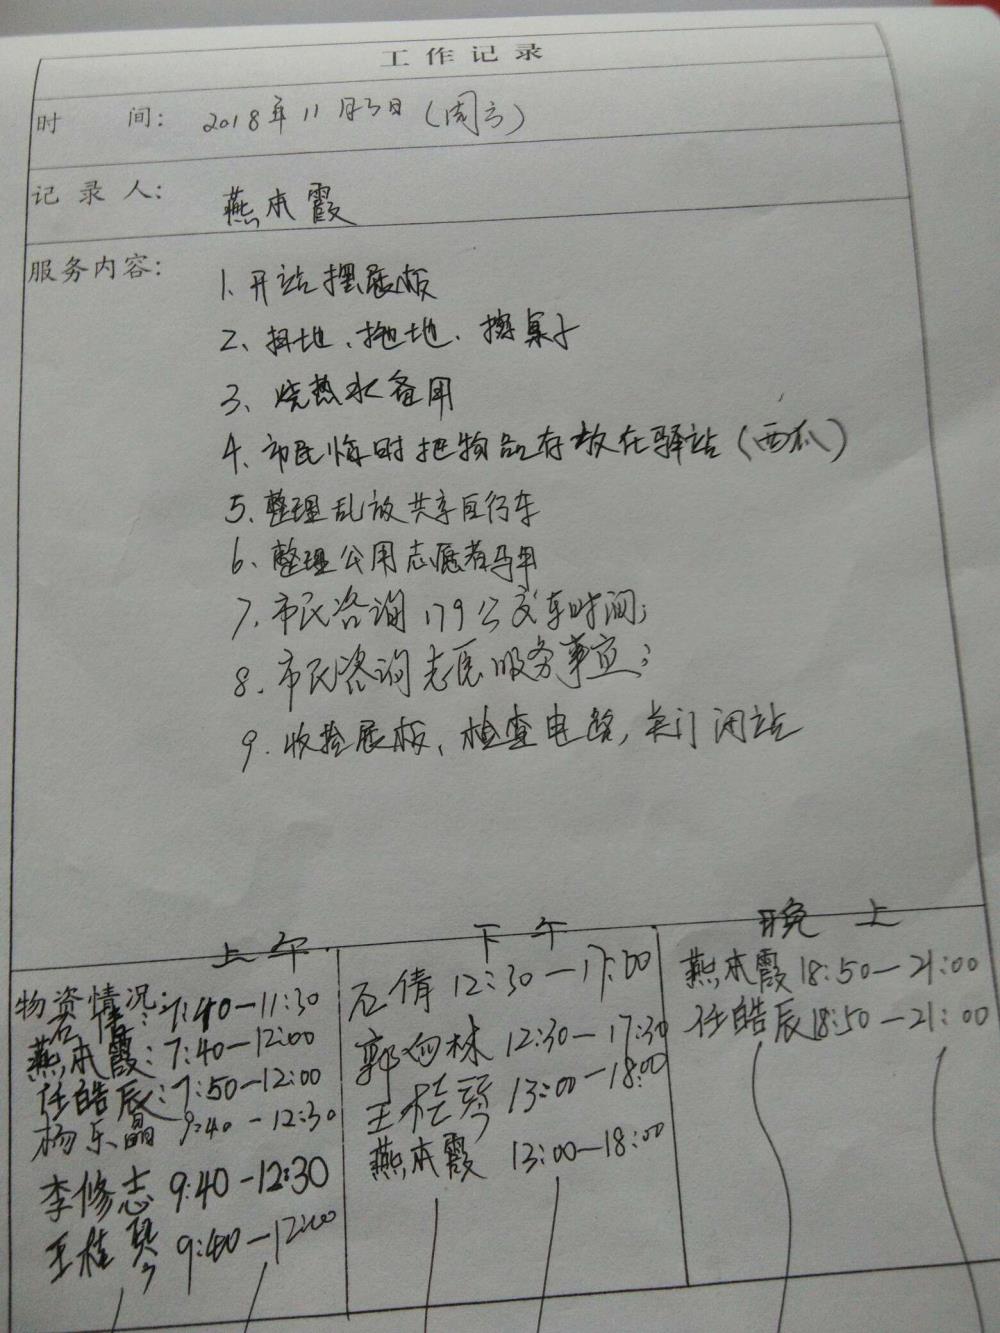 工作记录
时 间： 2018年11月3日（周六）
记录人： 燕本霞
服务内容：
1、开站摆展板
2、扫地、拖地、擦桌子
3、烧热水备用
4、市民临时把物品存放在驿站（西瓜）
5、整理乱放共享自行车
6、整理公用志愿者马甲
7、市民咨询179公交车时间；
8、市民咨询志愿服务事宜；
9、收拾展板、检查电路，关门闭站
上午
下午
晚上
物资情况：
石倩：7:40—11:30
燕本霞：7:40—12:00
任皓辰：7:50—12:00
杨乐晶 9:40—12:30
李修志 9:40—12:30
王桂琴 9:40—12:00
石倩 12:30—17:00
郭 林 12:30—17:30
王桂琴 13:00—18:00
燕本霞 13:00—18:00
燕本霞 18:50—21:00
任皓辰 18:50—21:00